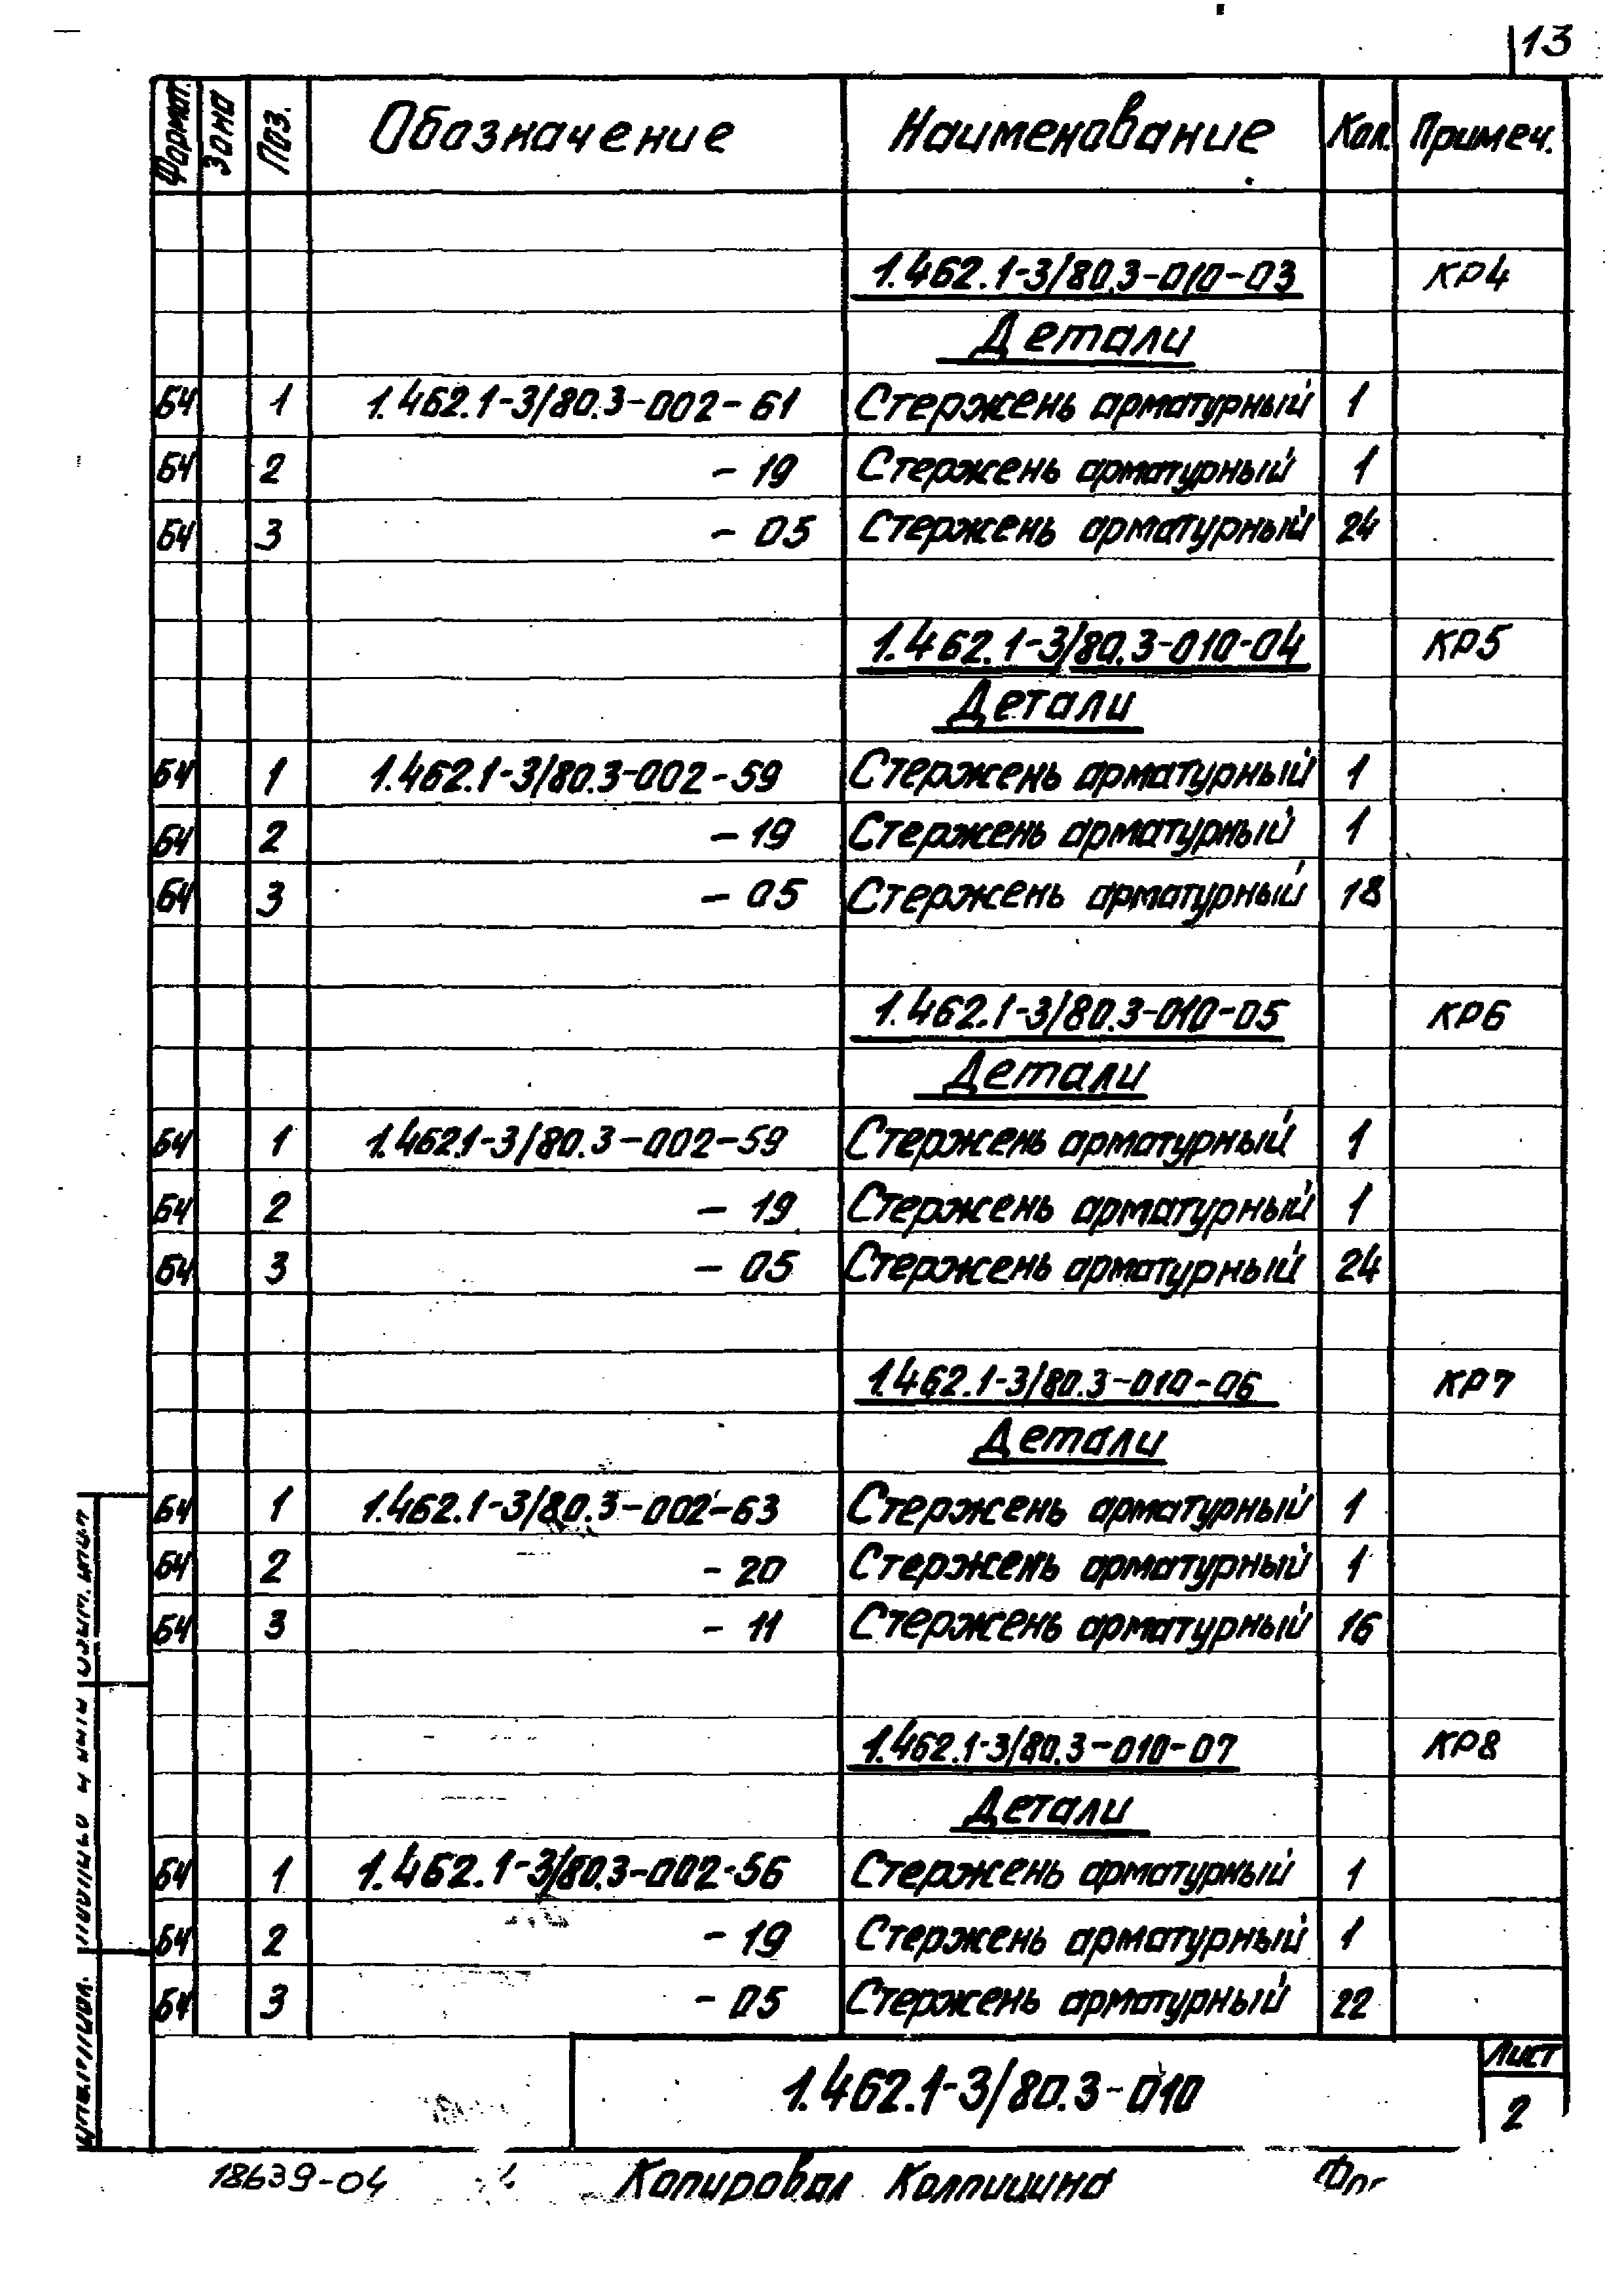 13
Формат. Зона Поз. Обозначение Наименование Кол. Примеч.
1.462.1-3/80.3-010-03 КР4
Детали
БЧ 1 1.462.1-3/80.3-002-61 Стержень арматурный 1
БЧ 2 -19 Стержень арматурный 1
БЧ 3 -05 Стержень арматурный 24
1.462.1-3/80.3-010-04 КР5
Детали
БЧ 1 1.462.1-3/80.3-002-59 Стержень арматурный 1
БЧ 2 -19 Стержень арматурный 1
БЧ 3 -05 Стержень арматурный 18
1.462.1-3/80.3-010-05 КР6
Детали
БЧ 1 1.462.1-3/80.3-002-59 Стержень арматурный 1
БЧ 2 -19 Стержень арматурный 1
БЧ 3 -05 Стержень арматурный 24
1.462.1-3/80.3-010-06 КР7
Детали
БЧ 1 1.462.1-3/80.3-002-63 Стержень арматурный 1
БЧ 2 -20 Стержень арматурный 1
БЧ 3 -11 Стержень арматурный 16
1.462.1-3/80.3-010-07 КР8
Детали
БЧ 1 1.462.1-3/80.3-002-56 Стержень арматурный 1
БЧ 2 -19 Стержень арматурный 1
БЧ 3 -05 Стержень арматурный 22
1.462.1-3/80.3-010
Лист
2
18639-04 Копировал Колпицина